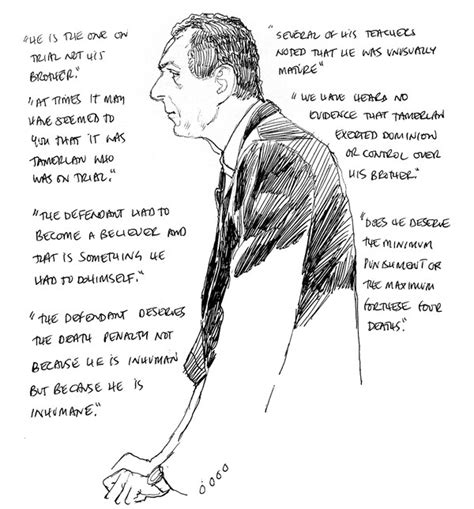 "HE IS THE ONE ON
TRIAL NOT HIS
BROTHER."
"AT TIMES IT MAY
HAVE SEEMED TO
YOU THAT IT WAS
TAMERLAN WHO
WAS ON TRIAL."
"THE DEFENDANT HAD TO
BECOME A BELIEVER AND
THAT IS SOMETHING HE
HAD TO DO HIMSELF."
"THE DEFENDANT DESERVES
THE DEATH PENALTY NOT
BECAUSE HE IS INHUMAN
BUT BECAUSE HE IS
INHUMANE."
"SEVERAL OF HIS TEACHERS
NOTED THAT HE WAS UNUSUALLY
MATURE"
"WE HAVE HEARD NO
EVIDENCE THAT TAMERLAN
EXERTED DOMINION
OR CONTROL OVER
HIS BROTHER."
"DOES HE DESERVE
THE MINIMUM
PUNISHMENT OR
THE MAXIMUM
FOR THESE FOUR
DEATHS."